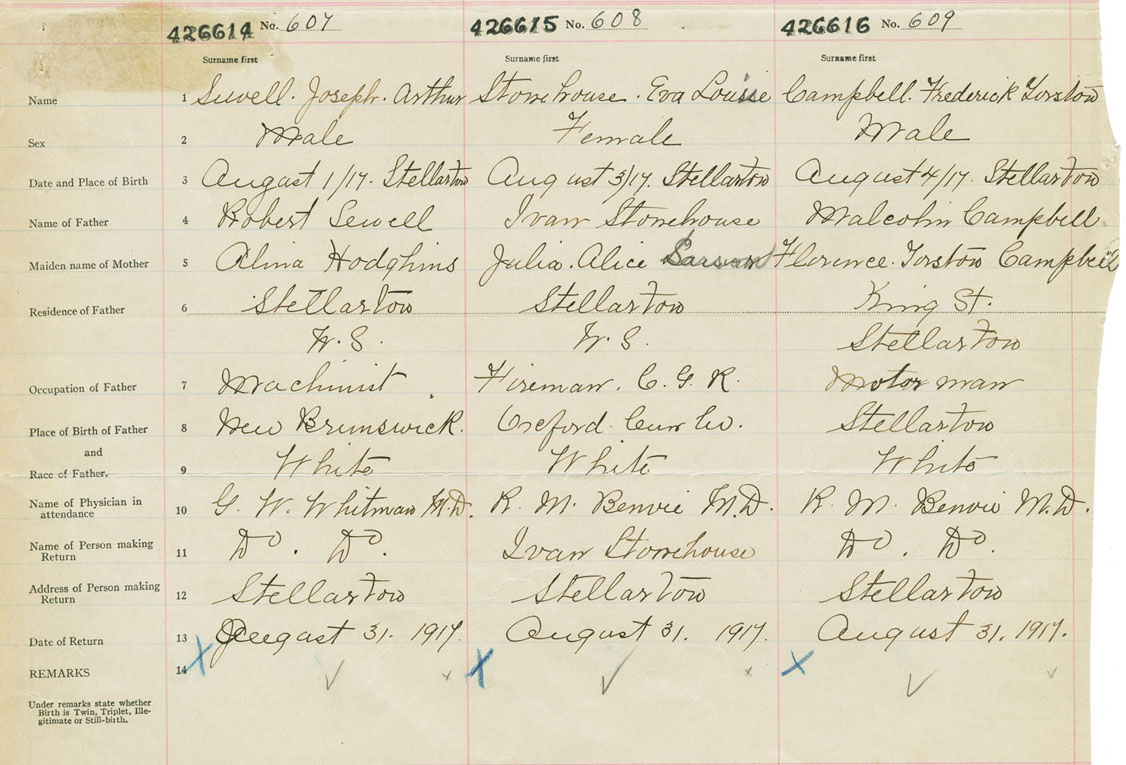 426614 No. 607 426615 No. 608 426616 No. 609
Surname first Surname first Surname first
Name 1 Sewell. Joseph. Arthur Stonehouse. Eva Louise Campbell. Frederick Torston
Sex 2 Male Female Male
Date and Place of Birth 3 August 1/17. Stellarton August 3/17. Stellarton August 4/17. Stellarton
Name of Father 4 Robert Sewell Ivan Stonehouse Malcolm Campbell
Maiden name of Mother 5 Alina Hodghins Julia. Alice Florence. Torston Campbell
Residence of Father 6 Stellarton Stellarton King St.
N. S. N. S. Stellarton
Occupation of Father 7 Machinist Fireman. C. G. R. Motor man
Place of Birth of Father 8 New Brunswick. Oxford Cum Co. Stellarton
and
Race of Father. 9 White White White
Name of Physician in
attendance 10 G. W. Whitman M.D. R. M. Benvie M.D. R. M. Benvie M.D.
Name of Person making
Return 11 Do. Do. Ivan Stonehouse Do. Do.
Address of Person making
Return 12 Stellarton Stellarton Stellarton
Date of Return 13 August 31. 1917. August 31. 1917. August 31. 1917.
REMARKS 14
Under remarks state whether
Birth is Twin, Triplet, Ille-
gitimate or Still-birth.